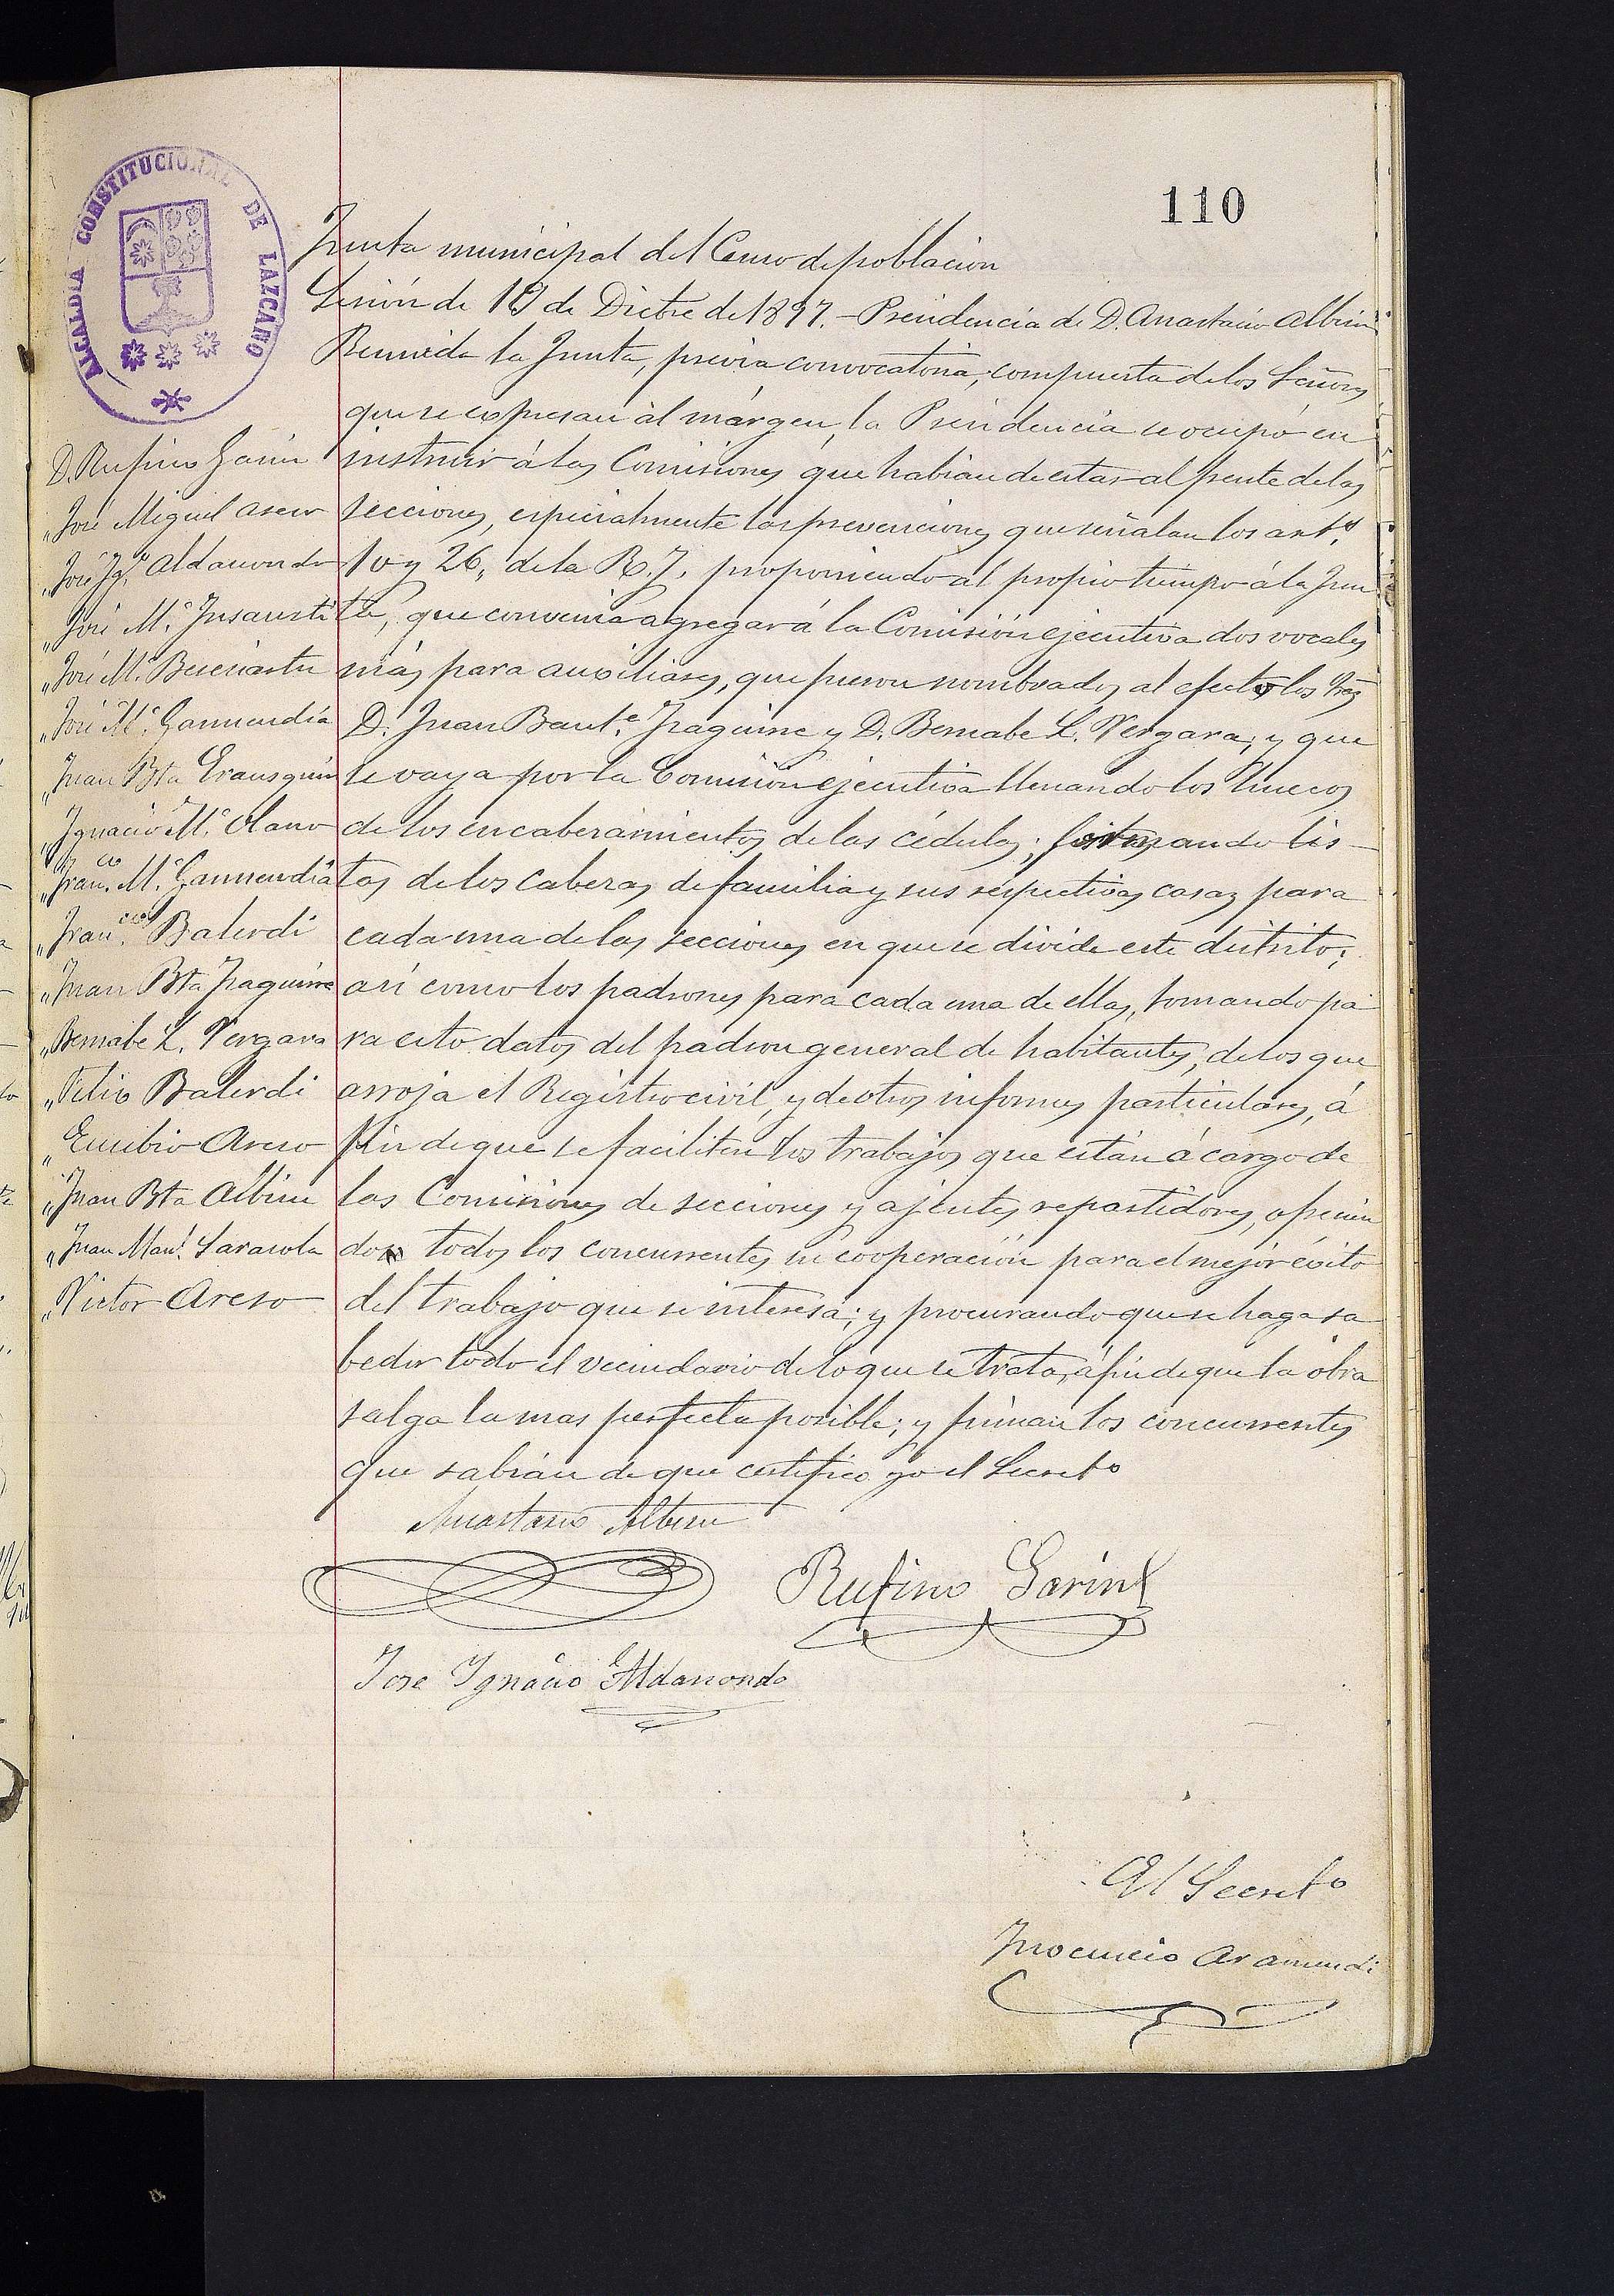 110
ALCALDIA CONSTITUCIONAL DE LAZCANO
Junta municipal del Censo de poblacion
Sesión de 19 de Dicbre de 1897. - Presidencia de D. Anastasio Albisu
Reunida la Junta, previa convocatoria, compuesta de los Señores
que se expresan al márgen, la Presidencia se ocupó en
instruir á las Comisiones que habian de estar al frente de las
secciones, especialmente las prevenciones que señalan los arts.
10 y 26,, de la R. I. proponiendo al propio tiempo á la Jun
ta, que convenia agregar á la Comisión ejecutiva dos vocales
más para auxiliares, que fueron nombrados al efecto los Sres
D. Juan Baute. Iraguirre y D. Bernabe L. Vergara; y que
se vaya por la Comisión ejecutiva llenando los huecos
de los encabezamientos de las cédulas; formando lis-
tas de los cabezas de familia y sus respectivas casas para
cada una de las secciones en que se divide este distrito;
así como los padrones para cada una de ellas, tomando pa
ra esto datos del padron general de habitantes, de los que
arroja el Registro civil, y de otros informes particulares, á
fin de que se faciliten los trabajos que están á cargo de
las Comisiones de secciones y ajentes repartidores, ofrecien
do todos los concurrentes su cooperación para el mejor éxito
del trabajo que se interesa; y procurando que se haga sa
bedor todo el vecindario de lo que se trata, á fin de que la obra
salga la mas perfecta posible; y firman los concurrentes
que sabian de que certifico yo el Secreto
D. Rufino Garin
„ José Miguel Aseso
„ José Igo. Aldasondo
„ José Ma. Insausti
„ José Ma. Beseiartu
„ José Ma. Garmendia
„ Juan Bta Erausquin
„ Ignacio Ma. Olano
„ Franco. Ma. Garmendia
„ Franco. Balerdi
„ Juan Bta Iraguirre
„ Bernabé L. Vergara
„ Felix Balerdi
„ Eusebio Areso
„ Juan Bta Albisu
„ Juan Manl. Sarasola
„ Victor Areso
Anastasio Albisu
Rufino Garin
Jose Ignacio Aldasondo
El Secreto
Inocencio Aramendi